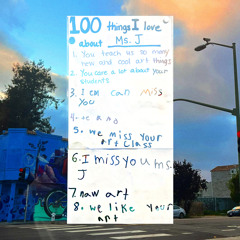 100 things I love
about Ms. J
1. You teach us so many
new and cool art things
2. You care a lot about your
students
3. I can miss
You
5. we miss your
art class
6. I miss you ms.
J
7. naw art
8. we like your
art